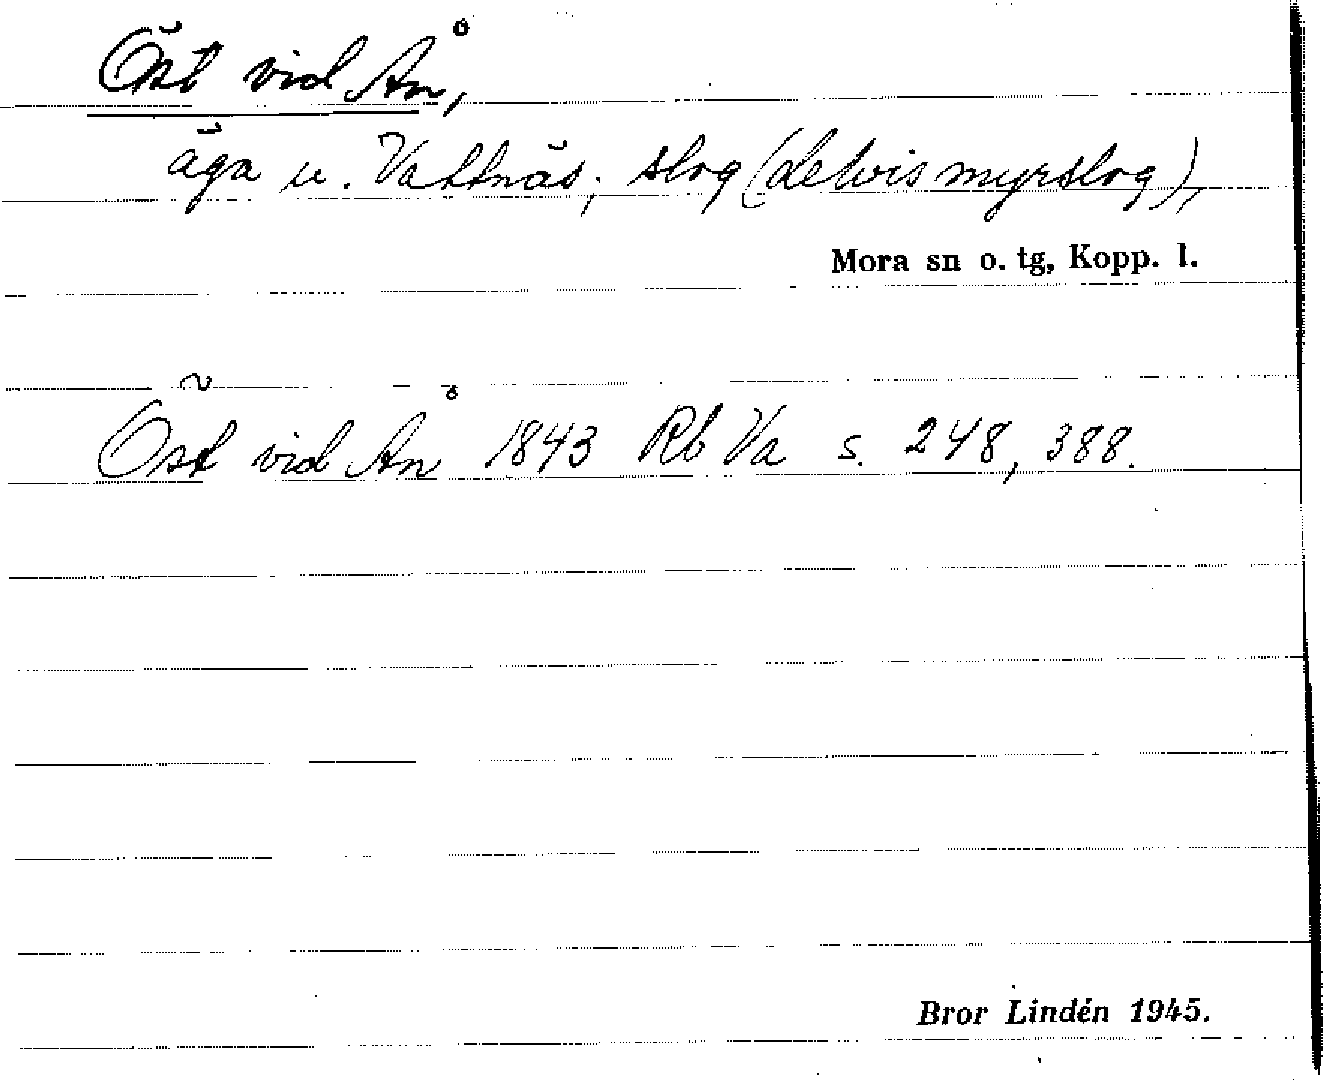 Öst vid Ån,
äga u. Vattnäs; slog (delvis myrslog),
Mora sn o. tg, Kopp. l.
Öst vid Ån 1843 Rb Va s. 248, 388.
Bror Lindén 1945.